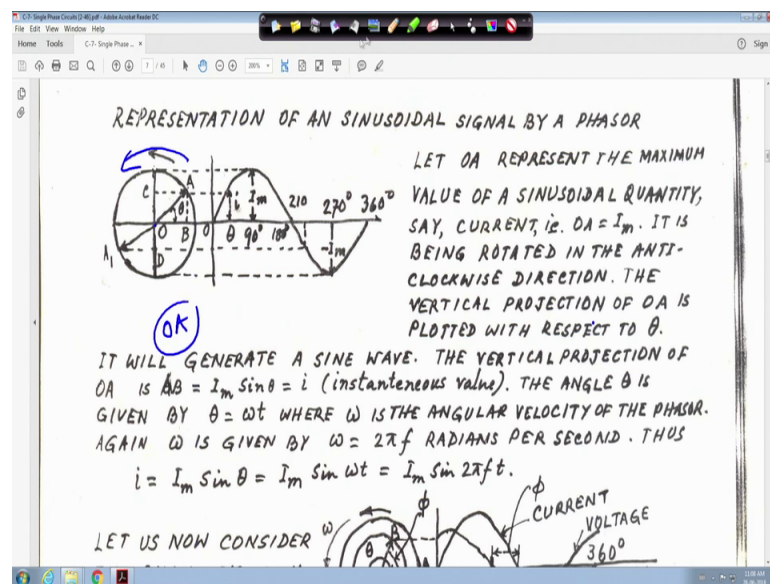 C-7- Single Phase Circuits [2-46].pdf - Adobe Acrobat Reader DC
File Edit View Window Help
Home Tools C-7- Single Phase ... × Sign
7 / 45 200%
REPRESENTATION OF AN SINUSOIDAL SIGNAL BY A PHASOR
LET OA REPRESENT THE MAXIMUM
VALUE OF A SINUSOIDAL QUANTITY,
SAY, CURRENT, ie. OA = Im. IT IS
BEING ROTATED IN THE ANTI-
CLOCKWISE DIRECTION. THE
VERTICAL PROJECTION OF OA IS
PLOTTED WITH RESPECT TO θ.
C A θ O B A1 D
0 θ 90° 180° 210 270° 360°
i Im -Im
OK
IT WILL GENERATE A SINE WAVE. THE VERTICAL PROJECTION OF
OA IS AB = Im Sinθ = i (instanteneous value). THE ANGLE θ IS
GIVEN BY θ = ωt WHERE ω IS THE ANGULAR VELOCITY OF THE PHASOR.
AGAIN ω IS GIVEN BY ω = 2πf RADIANS PER SECOND. THUS
i = Im Sin θ = Im Sin ωt = Im Sin 2πft.
LET US NOW CONSIDER
ω θ B ϕ
ϕ CURRENT
VOLTAGE
360°
11:08 AM